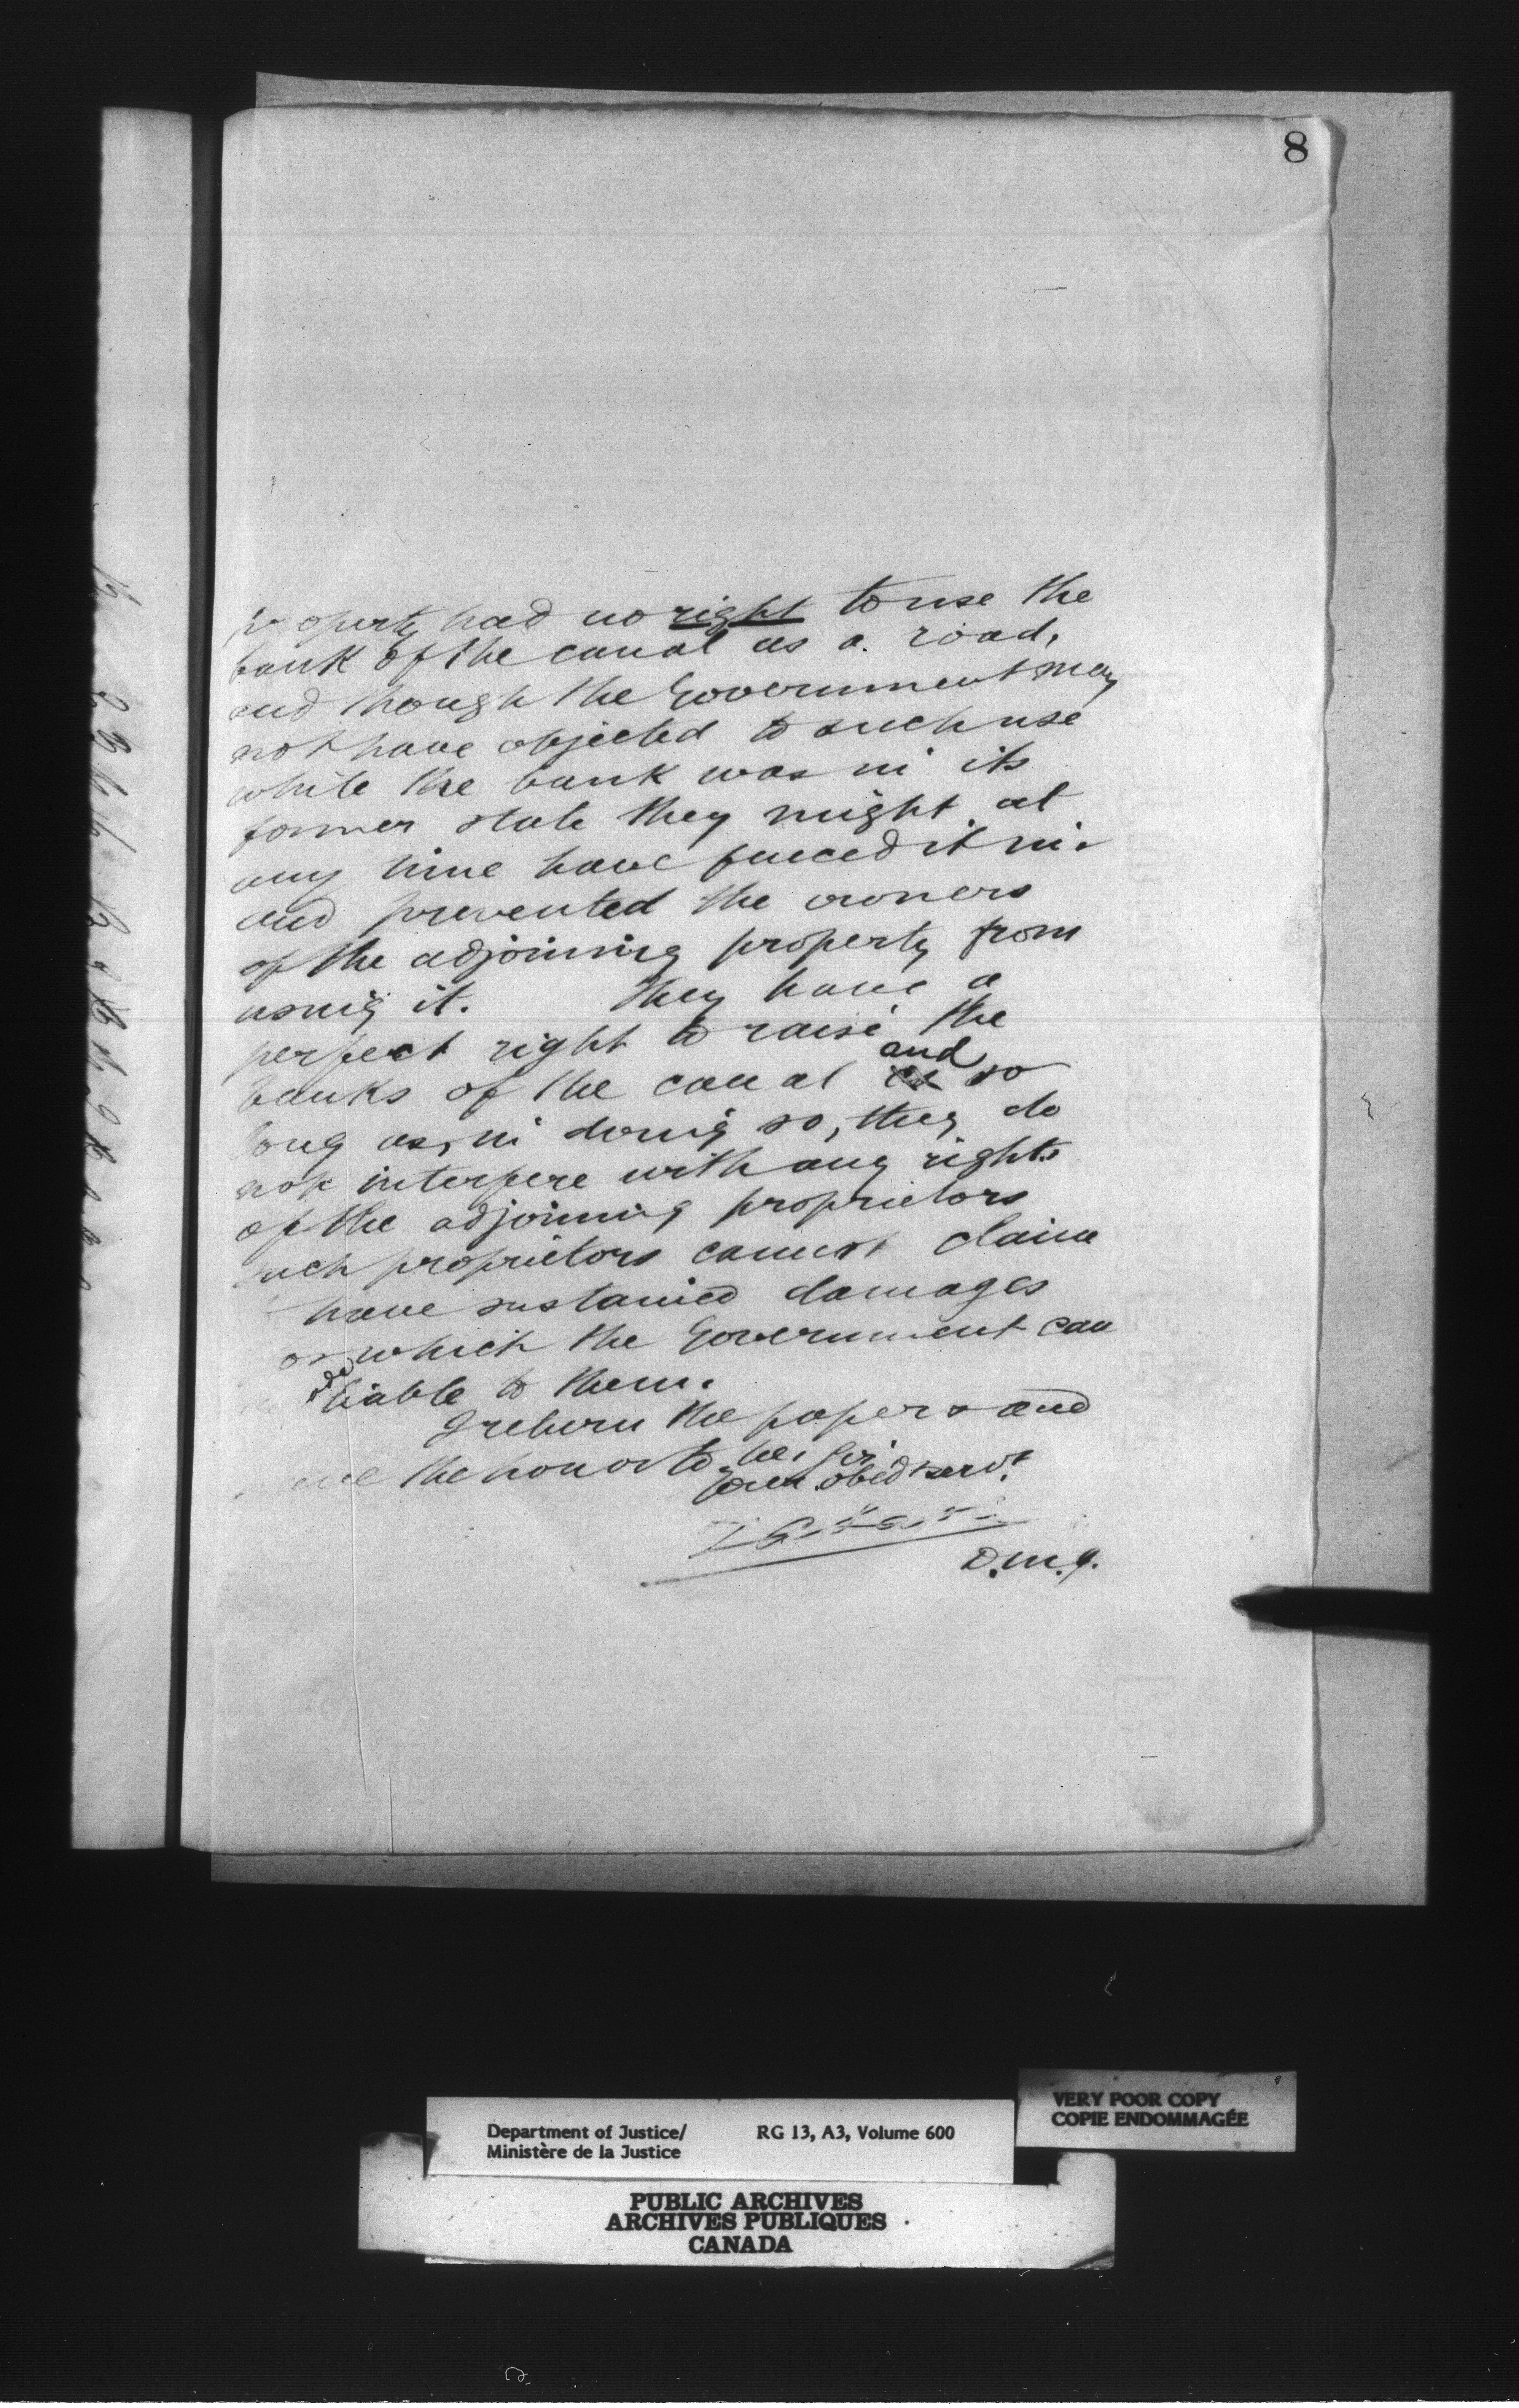 8
property had no right to use the
bank of the canal as a road,
and though the Government may
not have objected to such use
while the bank was in its
former state they might at
any time have fenced it in
and prevented the owners
of the adjoining property from
using it. They have a
perfect right to raise the
banks of the canal and so
long as, in doing so, they do
not interfere with any rights
of the adjoining proprietors
such proprietors cannot claim
have sustained damages
for which the Government can
be liable to them.
I return the papers and
have the honor to be, Sir,
Your obed servt
D.M.J.
VERY POOR COPY
COPIE ENDOMMAGÉE
Department of Justice/ RG 13, A3, Volume 600
Ministère de la Justice
PUBLIC ARCHIVES
ARCHIVES PUBLIQUES
CANADA